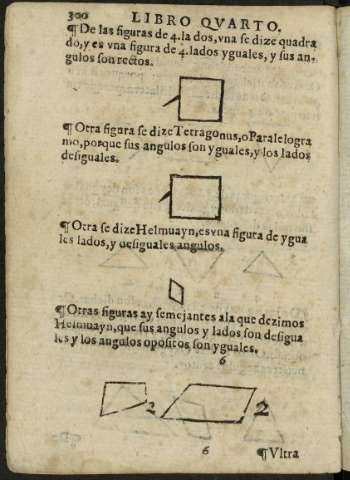 300 LIBRO QVARTO.
¶ De las figuras de 4. lados, vna se dize quadra
do, y es vna figura de 4. lados yguales, y sus an-
gulos son rectos.
¶ Otra figura se dize Tetragonus, o Paralelogra
mo, porque sus angulos son yguales, y los lados
desiguales.
¶ Otra se dize Helmuayn, es vna figura de ygua
les lados, y desiguales angulos.
¶ Otras figuras ay semejantes ala que dezimos
Helmuayn, que sus angulos y lados son desigua
les y los angulos opositos son yguales.
6
2 2
6
¶ Vltra